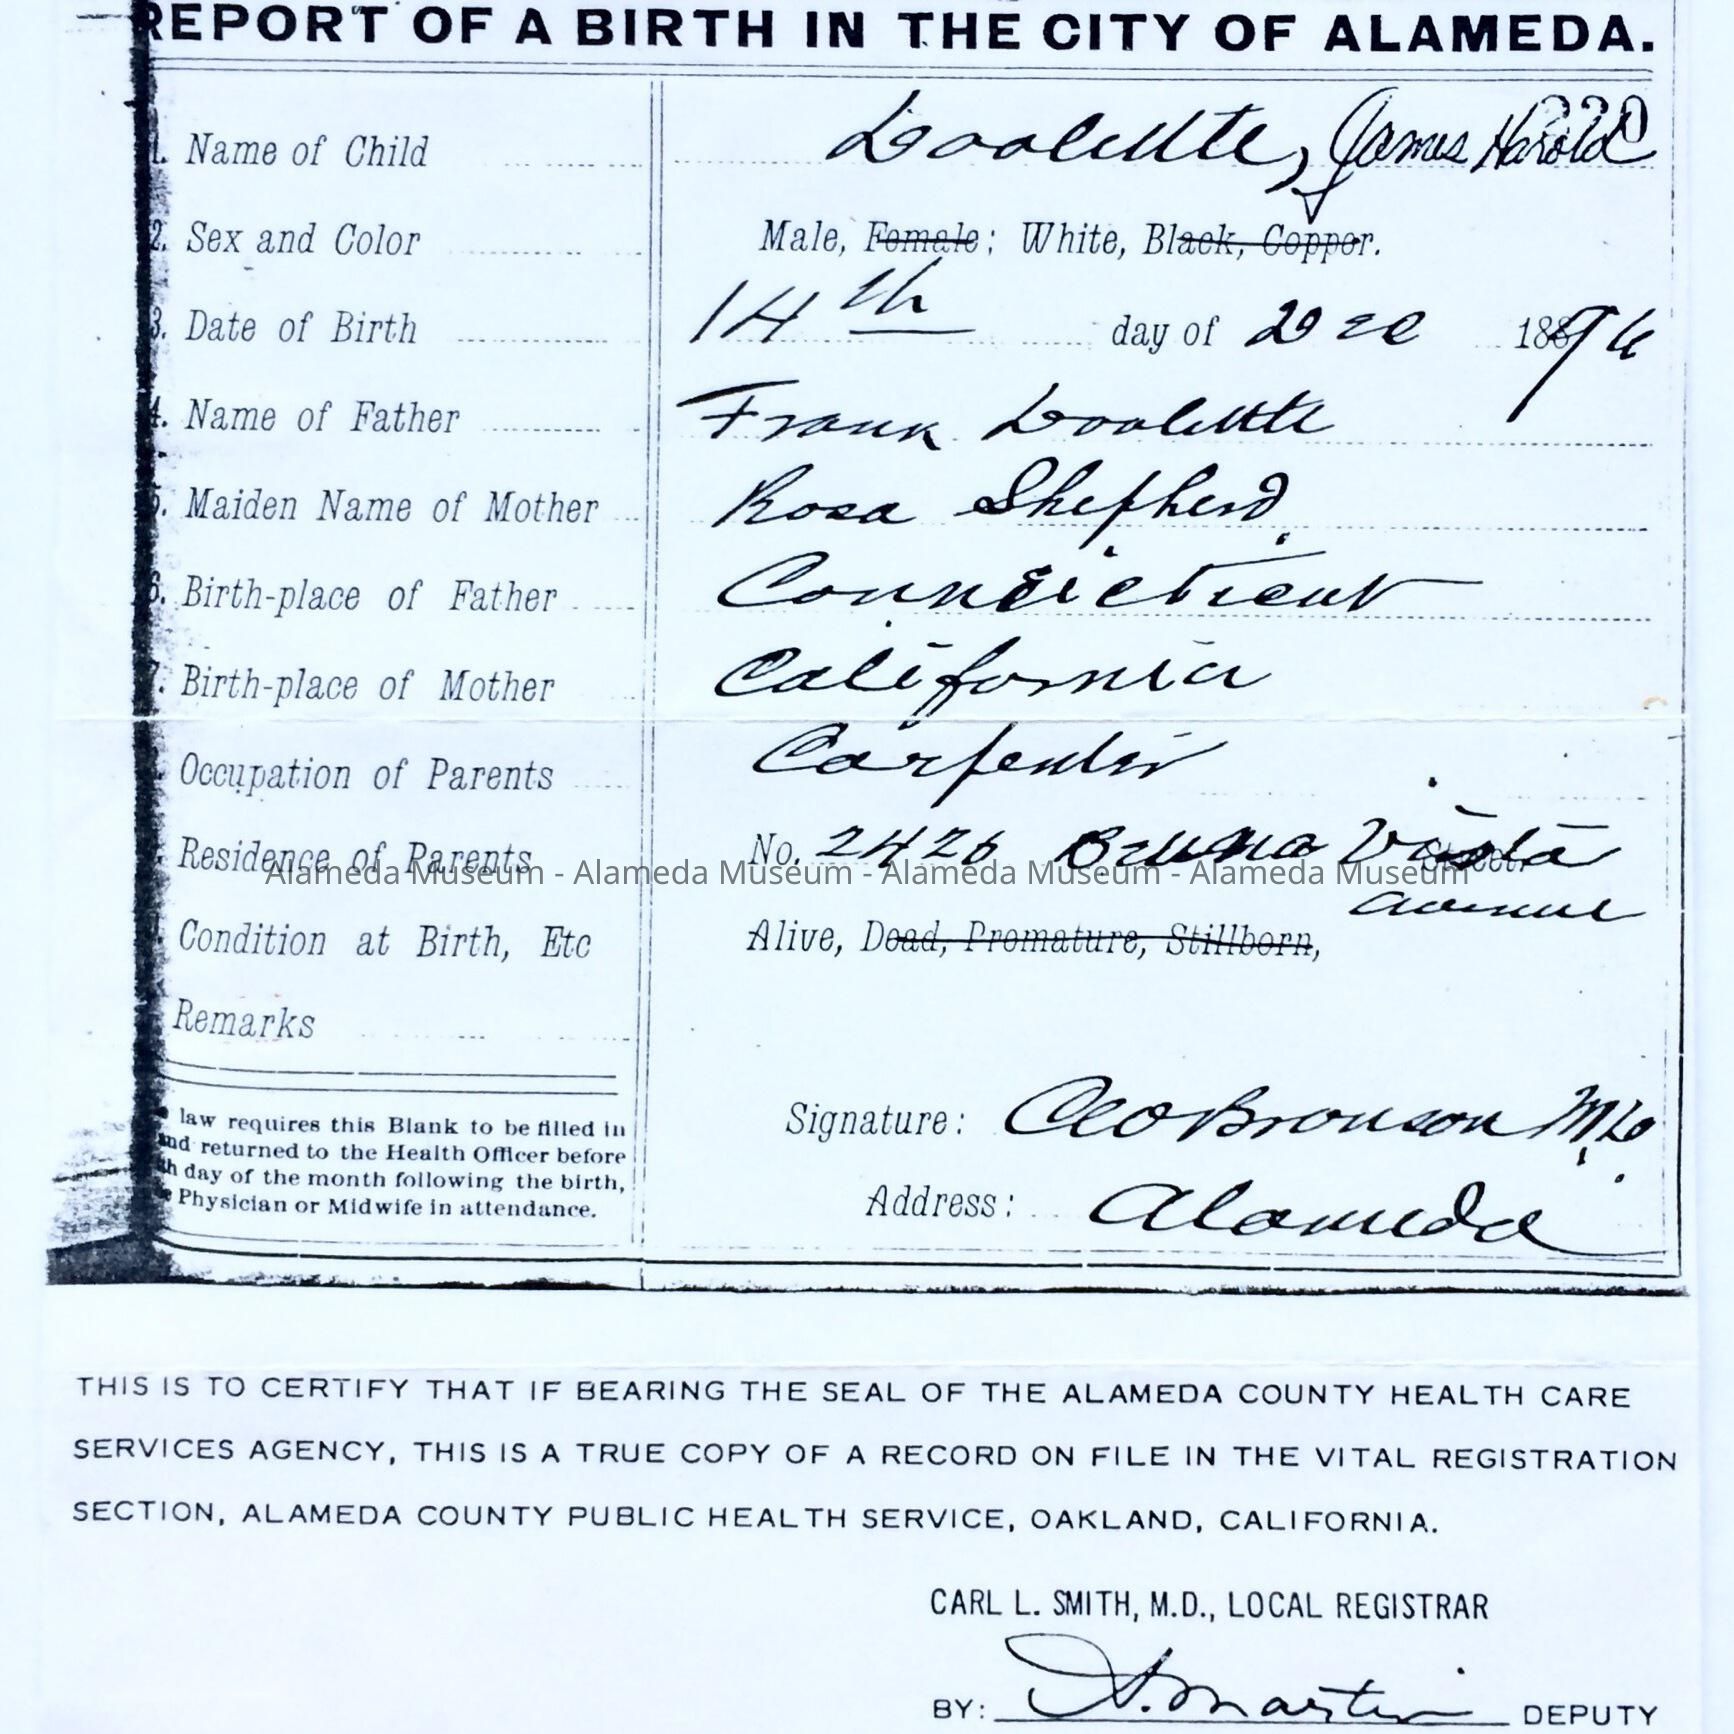 REPORT OF A BIRTH IN THE CITY OF ALAMEDA.
1. Name of Child Doolittle, James Harold
2. Sex and Color Male, Female; White, Black, Copper.
3. Date of Birth 14th day of Dec 1896
4. Name of Father Frank Doolittle
5. Maiden Name of Mother Rosa Shepherd
6. Birth-place of Father Conneicticut
7. Birth-place of Mother California
Occupation of Parents Carpenter
Residence of Parents No. 2426 Buena Vista Street.
Avenue
Alameda Museum - Alameda Museum - Alameda Museum - Alameda Museum
Condition at Birth, Etc Alive, Dead, Premature, Stillborn,
Remarks
law requires this Blank to be filled in
and returned to the Health Officer before
th day of the month following the birth,
Physician or Midwife in attendance.
Signature: Bronson MD
Address: Alameda
THIS IS TO CERTIFY THAT IF BEARING THE SEAL OF THE ALAMEDA COUNTY HEALTH CARE
SERVICES AGENCY, THIS IS A TRUE COPY OF A RECORD ON FILE IN THE VITAL REGISTRATION
SECTION, ALAMEDA COUNTY PUBLIC HEALTH SERVICE, OAKLAND, CALIFORNIA.
CARL L. SMITH, M.D., LOCAL REGISTRAR
BY: A. Martin DEPUTY